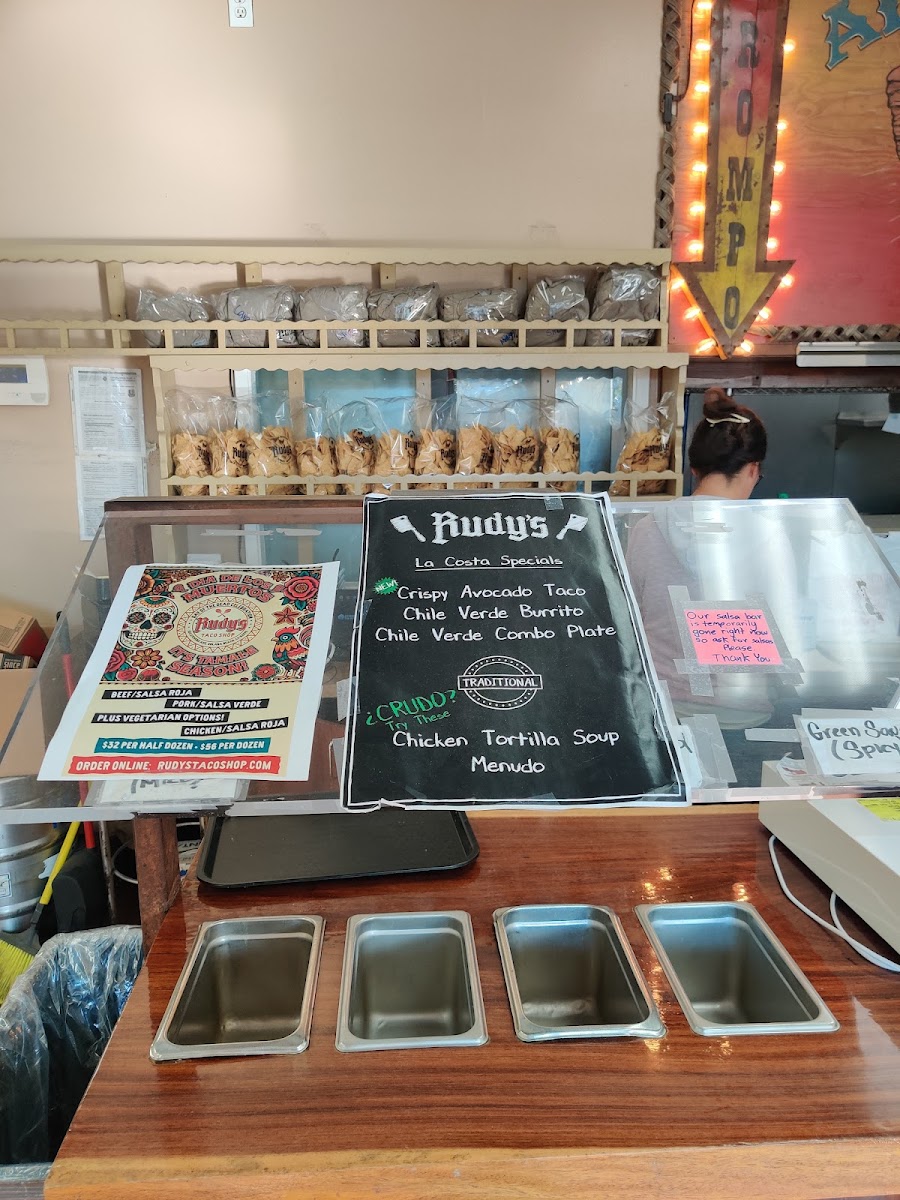 TROMPO
Rudy's
La Costa Specials
NEW!
Crispy Avocado Taco
Chile Verde Burrito
Chile Verde Combo Plate
TRADITIONAL
¿CRUDO?
Try These
Chicken Tortilla Soup
Menudo
DIA DE LOS
MUERTOS
Rudy's
TACO SHOP
IT'S TAMALE
SEASON!
BEEF/SALSA ROJA
PORK/SALSA VERDE
PLUS VEGETARIAN OPTIONS!
CHICKEN/SALSA ROJA
$32 PER HALF DOZEN - $56 PER DOZEN
ORDER ONLINE: RUDYSTACOSHOP.COM
Our salsa bar
is temporarily
gone right now
so ask for salsas
Please
Thank You
Green Sa
(Spicy
(MILD)
Rudy's